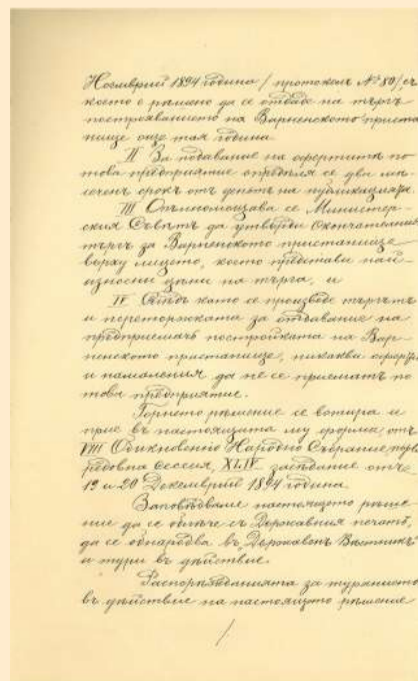 Ноемврий 1894 година / протоколъ № 80/, съ
което е рѣшено да се отдаде на търгъ
построяването на Варненското приста-
нище още тая година.
II За подаване на офертитѣ по
това предприятие опредѣля се два мѣ-
сеченъ срокъ отъ деньтъ на публикацията.
III Отпълномощава се Министер-
ския Съвѣтъ да утвърди окончателния
търгъ за Варненското пристанище
върху лицето, което представи най-
износни цѣни на търга, и
IV Слѣдъ като се произведе търгътъ
и переторжката за отдавание на
предприемачъ постройката на Вар-
ненското пристанище, никакви оферти
и намаления да не се приематъ по
това предприятие.
Горнето рѣшение се вотира и
прие въ настоящата му форма, отъ
VIII Обикновенно Народно Събрание, първа
редовна сессия, XLIV засѣдание отъ
19 и 20 Декемврий 1894 година.
Заповѣдваме настоящето рѣше-
ние да се облѣче съ Държавния печатъ,
да се обнародва въ „Държавенъ Вѣстникъ“
и тури въ дѣйствие.
Распорежданията за турянието
въ дѣйствие на настоящето рѣшение